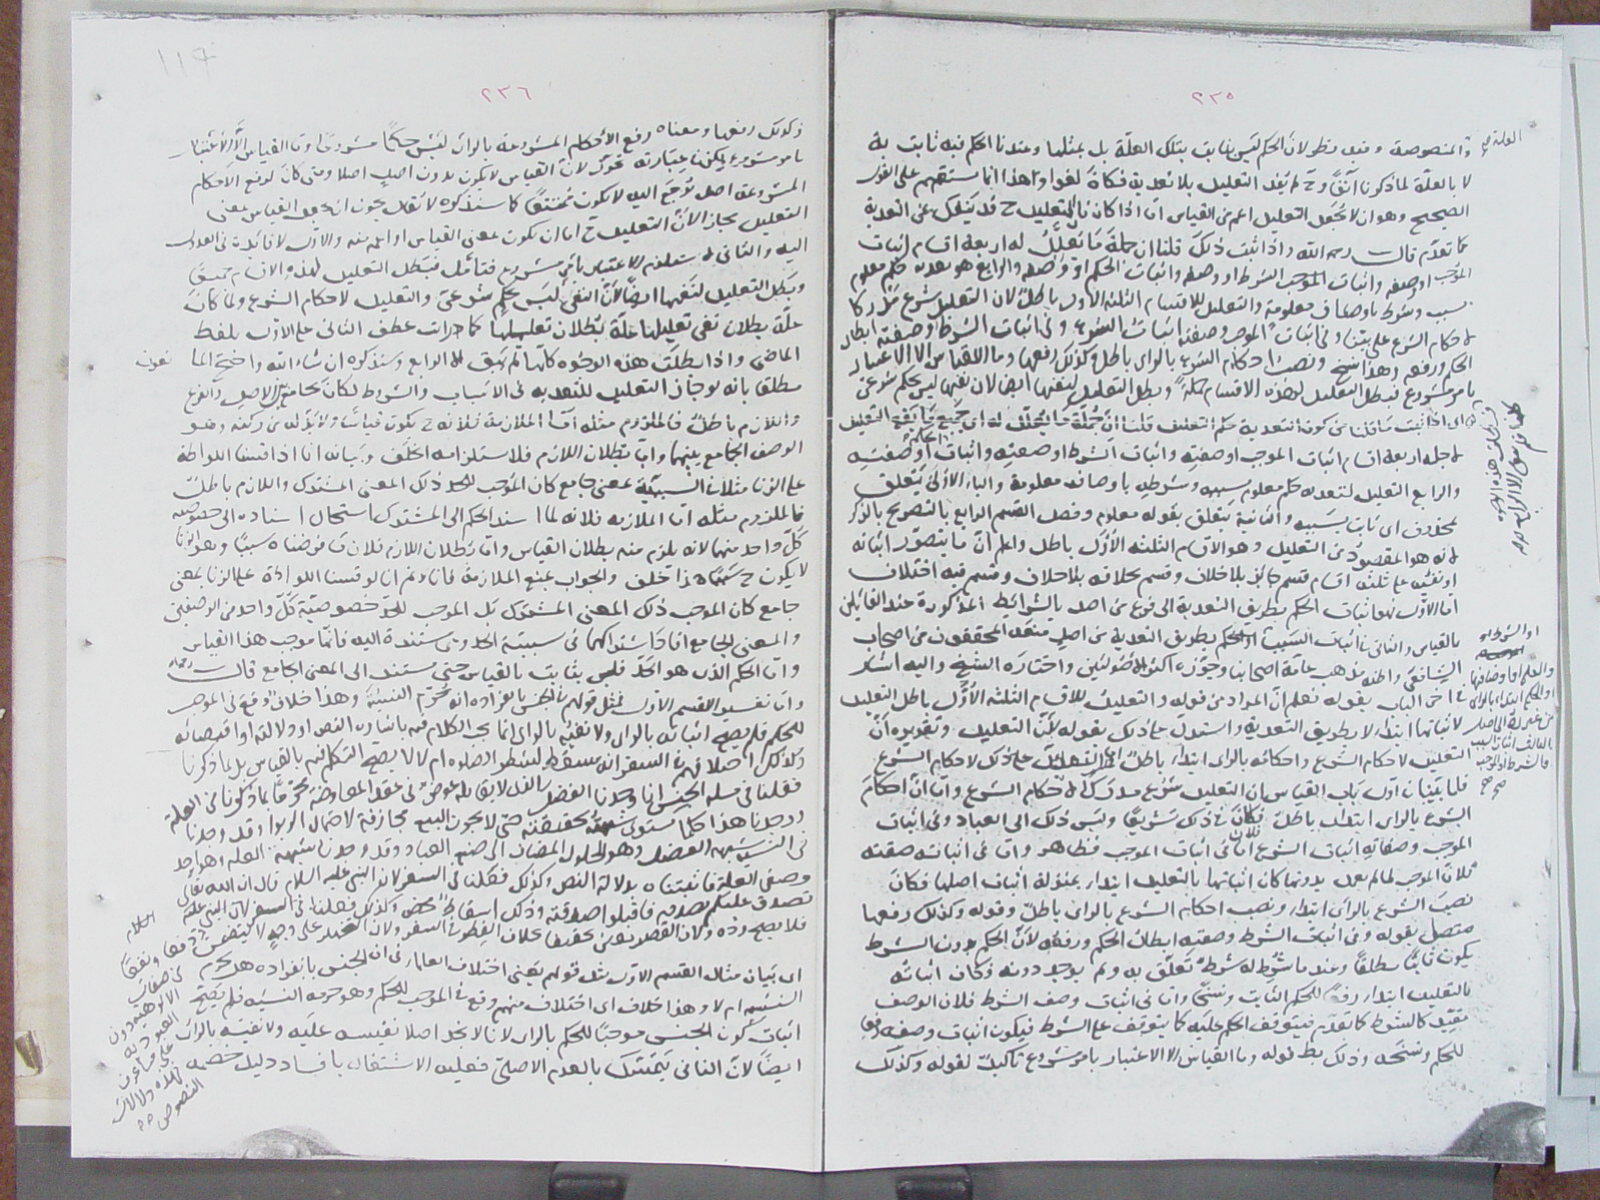 ٢٣٥
والمنصوصة وفيه نظر لان الحكم ليس بثابت بتلك العلة بل بمثلها وعندنا الحكم فيه ثابت به
لا بالعلة لما ذكرنا آنفا وح لم يفد التعليل بلا تعدية فكان لغوا وهذا انما يستقيم على القول
الصحيح وهو ان لا يجعل التعليل اعم من القياس اما اذا كان فالتعليل ح قد ينفك عن التعدية
كما تقدم قال رحمه الله واذا ثبت ذلك قلنا ان جملة ما يعلل له اربعة اقسام اثبات
الموجب او وصفه واثبات الشرط او وصفه واثبات الحكم او وصفه والرابع هو تعدية حكم معلوم
بسببه وشرطه باوصاف معلومة والتعليل للاقسام الثلثة الاول باطل لان التعليل شرع مدركا
لاحكام الشرع على ما بينا وفي اثبات الموجب وصفته اثبات الشرع وفي اثبات الشرط وصفته ابطال
الحكم ورفعه وهذا نسخ ونصب احكام الشرع بالراي باطل وكذلك رفعها وما القياس الا الاعتبار
بامر مشروع فبطل التعليل لهذه الاقسام جملة وبطل التعليل لنفيها ايضا لان نفيها ليس بحكم شرعي
اي اذا ثبت ما قلنا من كون التعدية حكم التعليل قلنا ان جملة ما يعلل له اي جميع ما يقع التعليل
لاجله اربعة اقسام اثبات الموجب او صفته واثبات الشرط او صفته واثبات الحكم او صفته
والرابع التعليل لتعدية حكم معلوم بسببه وشرطه باوصاف معلومة والباء الاولى يتعلق
بمحذوف اي ثابت بسببه والثانية يتعلق بقوله معلوم وفصل القسم الرابع بالتصريح بالذكر
لانه هو المقصود من التعليل وهو الاقسام الثلثة الاول باطل واعلم ان ما يتصور اثباته
او نفيه على ثلثة اقسام قسم جائز بلا خلاف وقسم بخلافه بلا خلاف وقسم فيه اختلاف
اما الاول فهو اثبات الحكم بطريق التعدية الى فرع من اصل بالشرائط المذكورة عند القائلين
بالقياس والثاني في اثبات السبب او الحكم بطريق التعدية من اصل منعه المحققون من اصحاب
الشافعي واظنه مذهب عامة اصحابنا وجوزه اكثر الاصوليين واختاره الشيخ واليه اشار
في اخر الباب بقوله فعلم ان المراد من قوله والتعليل للاقسام الثلثة الاول باطل التعليل
لاثباتها ابتداء لا بطريق التعدية واستدل على ذلك بقوله لان التعليل وتقريره ان
التعليل لاحكام الشرع واحكامه بالراي ابتداء باطل على ذلك لاحكام الشرع
فلما بينا في اول باب القياس ان التعليل شرع مدركا لاحكام الشرع واما ان احكام
الشرع بالراي ابتداء باطل فكان في ذلك تشريكا وليس ذلك الى العباد وفي اثبات
الموجب وصفاته اثبات الشرع اما في اثبات الموجب فظاهر واما في اثباته صفته
فلان الموجب لما لم يعمل بدونها كان اثباتها بالتعليل ابتداء بمنزلة اثبات اصلها فكان
نصب الشرع بالراي ابتداء ونصب احكام الشرع بالراي باطل وقوله وكذلك رفعها
متصل بقوله وفي اثبات الشرط وصفته ابطال الحكم ورفعه لان الحكم بدون الشرط
يكون ثابتا مطلقا وعندما شرط له شرط تعلق به ولم يوجد دونه فكان اثباته
بالتعليل ابتداء رفعا للحكم الثابت ونسخا واما في اثبات وصف الشرط فلان الوصف
مقيد كالشرط كما تقدم فيتوقف الحكم عليه كما يتوقف على الشرط فيكون اثبات وصفه رفعا
للحكم ونسخه وذلك بط قوله وما القياس الا الاعتبار بامر مشروع تاكيد لقوله وكذلك
العلة صح
٢٣٦
وكذلك رفعها ومعناه رفع الاحكام المشروعة بالراي ليس حكما مشروعا وما القياس الا الاعتبار
المشروعة اصل توجه اليه لا يكون ممتنعا كما سنذكره لا يقال يجوز ان يجعل القياس بمعنى
التعليل مجازا لان التعليل ح اما ان يكون بمعنى القياس او اعم منه والاول لا فائدة في العدول
اليه والثاني لا يستلزم الاعتبار بامر مشروع فتامل فبطل التعليل لهذه الاقسام جميعا
وبطل التعليل لنفيها ايضا لان النفي ليس بحكم شرعي والتعليل لاحكام الشرع ولما كان
علة بطلان نفي تعليلها علة بطلان تعليلها كما مرات عطف الثاني على الاول بلفظ
الماضي واذا بطلت هذه الوجوه كلها لم يبق الا الرابع وسنذكره ان شاء الله واحتج المانعون
مطلقا بانه لو جاز التعليل للتعدية في الاسباب والشروط لكان بجامع بين الاصل والفرع
واللازم باطل فالملزوم مثله اما الملازمة فلانه ح يكون قياسا ولا بد له من ركنه وهو
الوصف الجامع بينهما واما بطلان اللازم فلاستلزامه الخلف وبيانه انا اذا قسنا اللواطة
على الزنا مثلا في السببية بمعنى جامع كان الموجب للحد ذلك المعنى المشترك واللازم باطل
فالملزوم مثله اما الملازمة فلانه لما اسند الحكم الى المشترك استحال اسناده الى خصوصية
كل واحد منهما لانه يلزم منه بطلان القياس واما بطلان اللازم فلان ما فرضناه سببا وهو الزنا
لا يكون ح سببا هذا خلف والجواب بمنع الملازمة فانا لم نقل انا لو قسنا اللواطة على الزنا بمعنى
جامع كان الموجب ذلك المعنى المشترك بل الموجب للحد خصوصية كل واحد من الوصفين
والمعنى الجامع انما افاد اشتراكهما في سببية الحد وتستند اليه فانما موجب هذا القياس
واما الحكم الذي هو الحد فليس بثابت بالقياس حتى يستند الى المعنى الجامع قال رحمه
واما تفسير القسم الاول فمثل قولهم في الجنس بانفراده انه يحرم النسيئة وهذا خلاف وقع في الموجب
للحكم فلم يصح اثباته بالراي ولا نفيه بالراي انما يجب الكلام فيه باشارة النص او دلالته او اقتضائه
وكذلك اختلافهم في السفر انه مسقط لشطر الصلوة ام لا لا يصح التكلم فيه بالقياس بل بما ذكرنا
فقلنا في مسئلة الجنس انا وجدنا الفضل الذي لا يقابله عوض في عقد المعاوضة محرما بما ذكرنا من العلة
ووجدنا هذا حكما يستوي شبهته بحقيقته حتى لا يجوز البيع مجازفة لاحتمال الربوا وقد وجدنا
في النسيئة شبهة الفضل وهو الحلول المضاف الى صنع العباد وقد وجدنا شبهة العلة وهو احد
وصفي العلة فاثبتناه بدلالة النص وكذلك فعلنا في السفر لان النبي عليه السلام قال ان الله تعالى
تصدق عليكم بصدقة فاقبلوا صدقته وذلك اسقاط محض وكذلك فعلنا في السفر لان النبي عليه
فلا يصح رده ولان القصر تعين تخفيفا بخلاف الفطر في السفر ولان التخيير على وجه لا يتضمن رفقا ونفعا
اي بيان مثال القسم الاول مثل قولهم يعني اختلاف العلماء في ان الجنس بانفراده هل يحرم
النسيئة ام لا وهذا خلاف اي اختلاف منهم وقع في الموجب للحكم وهو حرمة النسيئة فلم يصح
اثبات كون الجنس موجبا للحكم بالراي لانا لا نجد اصلا نقيسه عليه ولا نفيه بالراي
ايضا لان النافي يتمسك بالعدم الاصلي فعليه الاشتغال بافساد دليل خصمه
السلام
من صفات
الالوهية دون
العبودية
النصوص